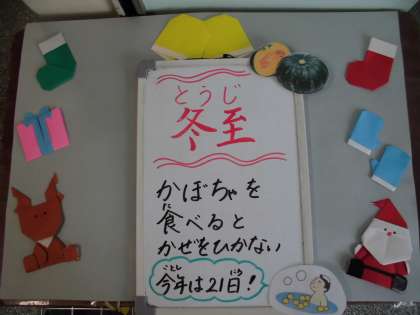 とうじ
冬至
かぼちゃを
食べると
かぜをひかない
ことし にち
今年は21日!